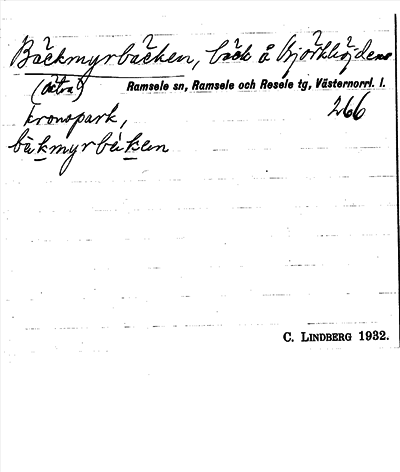 Bäckmyrbäcken, bäck å Björkhöjdens
(östra) Ramsele sn, Ramsele och Resele tg, Västernorrl. l.
kronopark, 266
bäkmyrbäken
C. LINDBERG 1932.